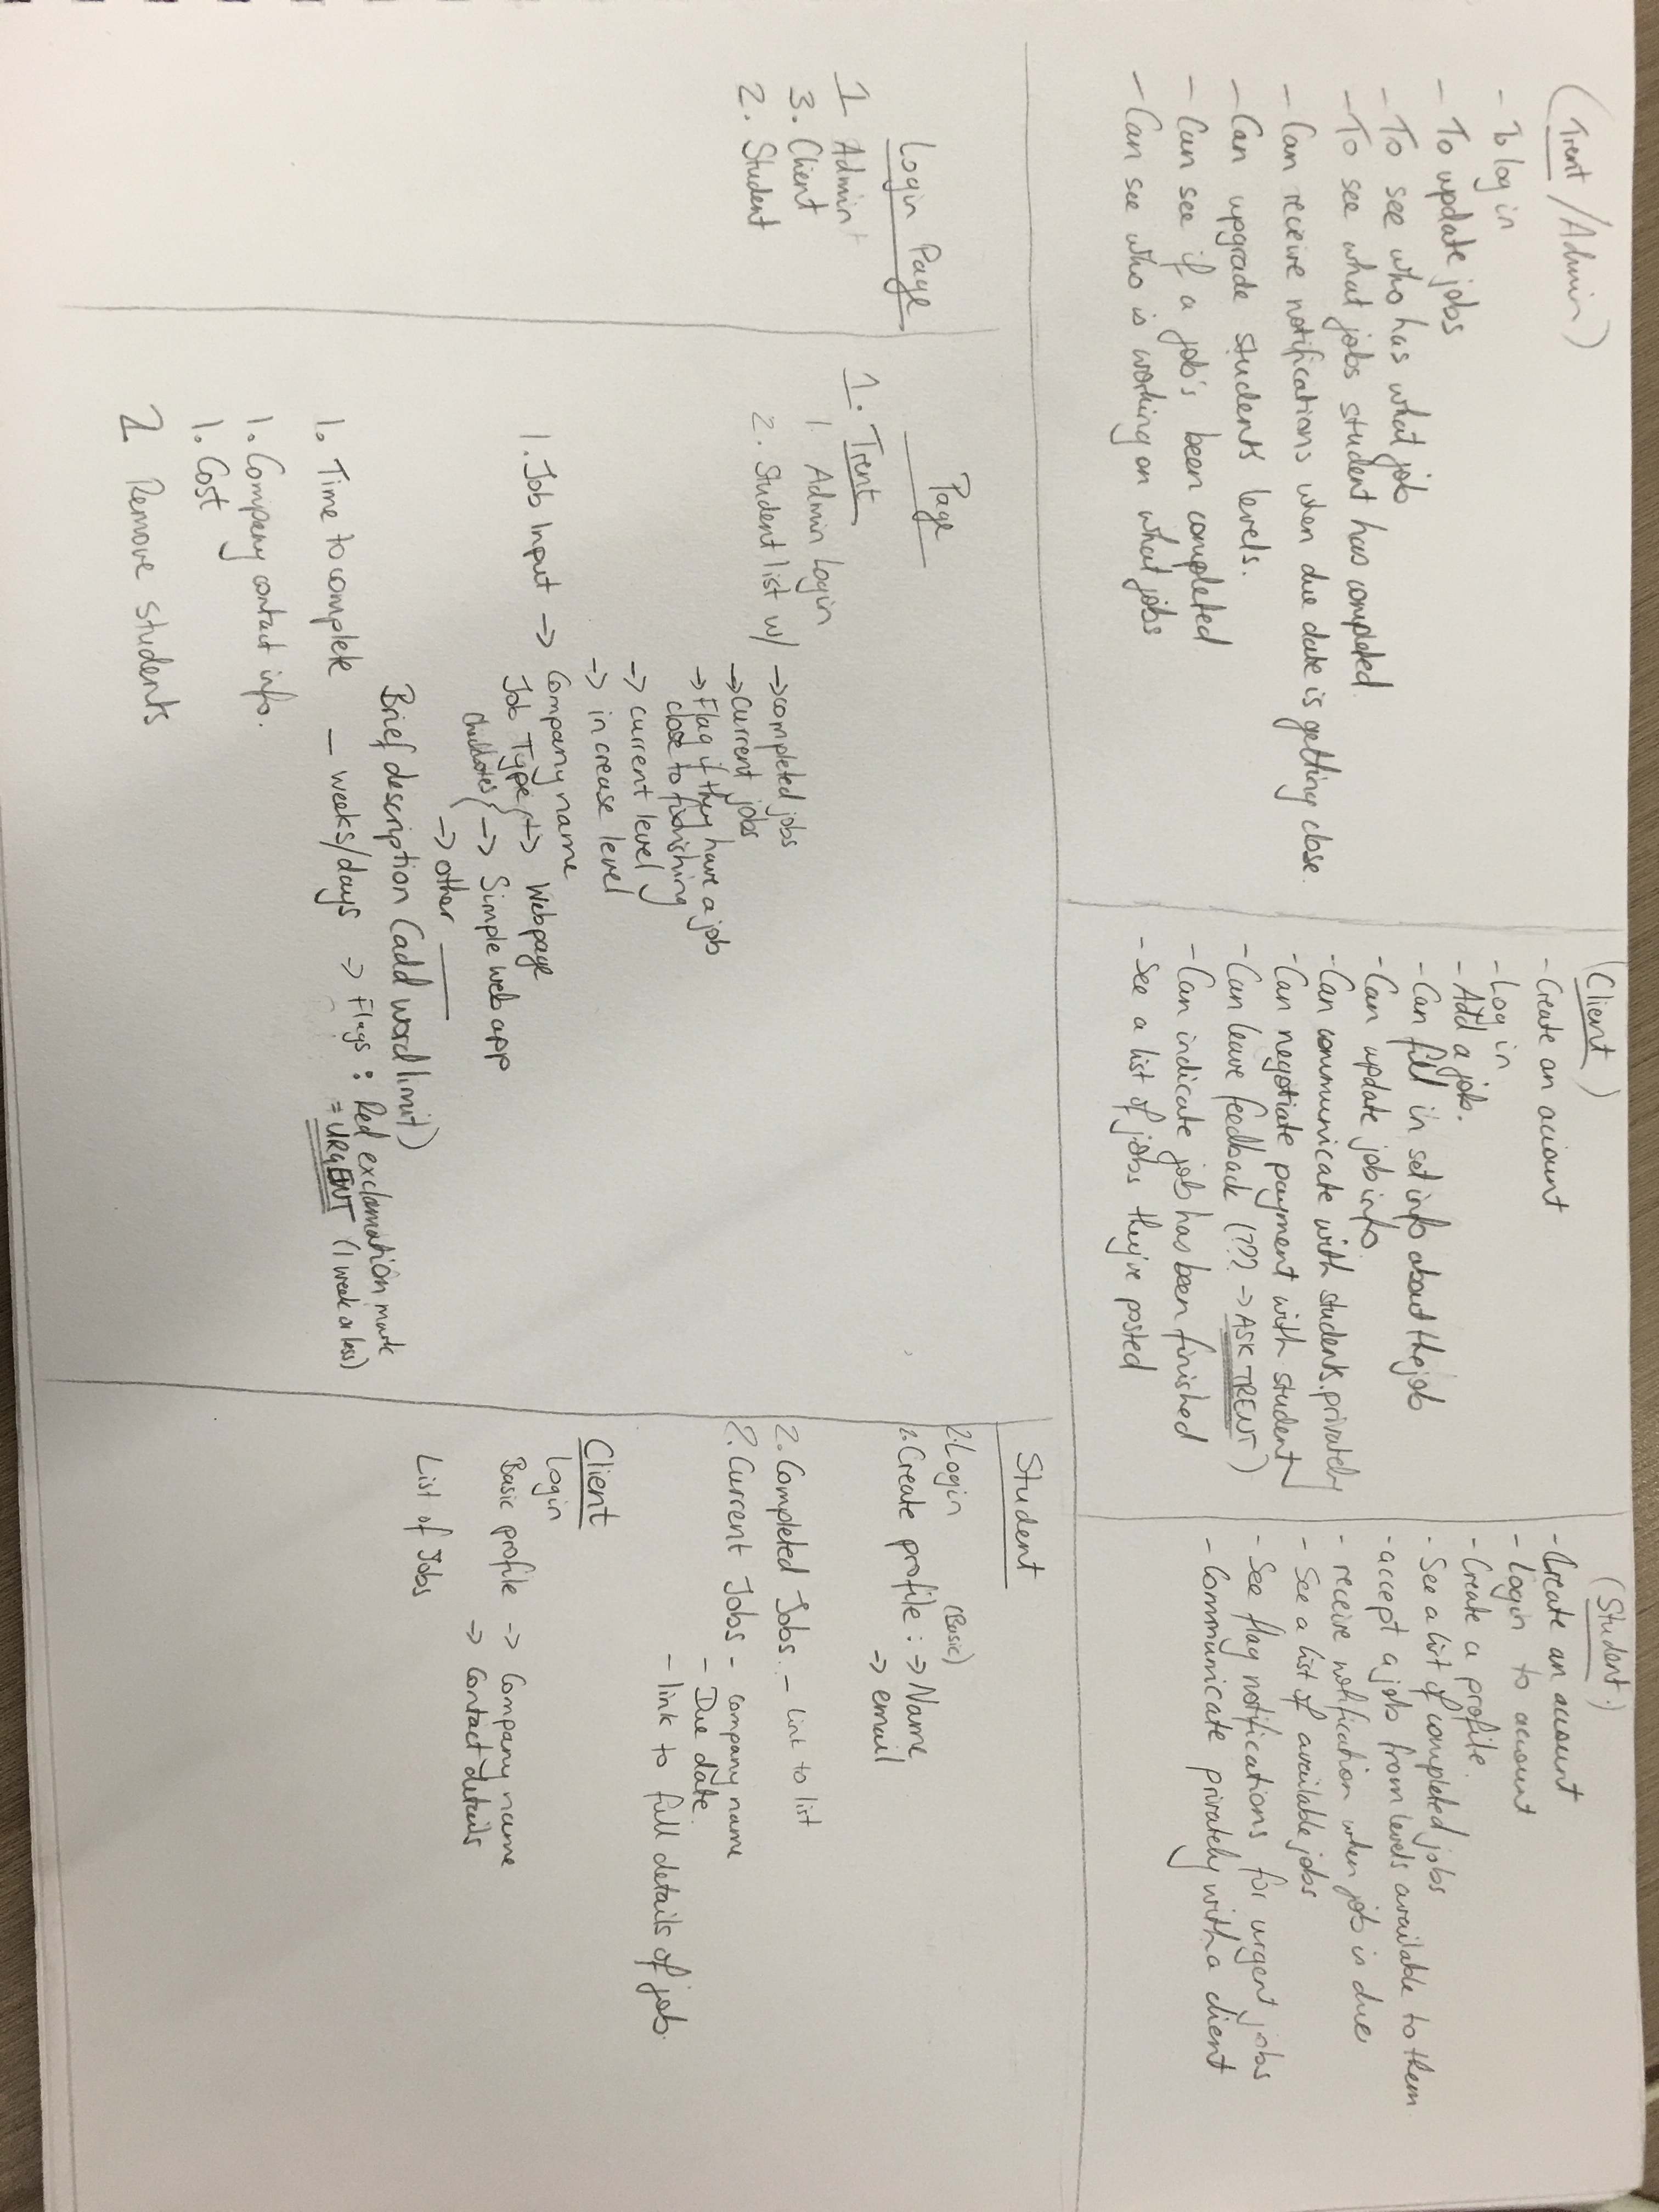 (Trent/Admin)
- To log in
- To update jobs
- To see who has what job
- To see what jobs student has completed.
- Can receive notifications when due date is getting close.
- Can upgrade students levels.
- Can see if a job's been completed
- Can see who is working on what jobs
(Client)
- Create an account
- Log in
- Add a job.
- Can fill in set info about the job
- Can update job info.
- Can communicate with students. privately
- Can negotiate payment with student
- Can leave feedback (??? -> ASK TRENT)
- Can indicate job has been finished
- See a list of jobs they've posted
(Student.)
- Create an account
- Login to account
- Create a profile.
- See a list of completed jobs
- accept a job from levels available to them.
- receive notification when job is due
- See a list of available jobs
- See flag notifications for urgent jobs
- Communicate privately with a client
Login Page
1 Admin
3. Client
2. Student
Page
1. Trent
1. Admin Login
2. Student list w/ -> completed jobs
-> Current jobs
-> Flag if they have a job
close to finishing
-> current level
-> increase level
1. Job Input -> Company name
Job Type -> Webpage
-> Simple web app
-> other
Brief description (add word limit)
1. Time to complete - weeks/days -> Flags : Red exclamation mark
= URGENT (1 week or less)
1. Company contact info.
1. Cost
2 Remove students
Student
2. Login
2. Create profile : -> Name
(Basic)
-> email
2. Completed Jobs. - link to list
2. Current Jobs - company name
- Due date.
- link to full details of job.
Client
Login
Basic profile -> Company name
-> Contact details
List of Jobs